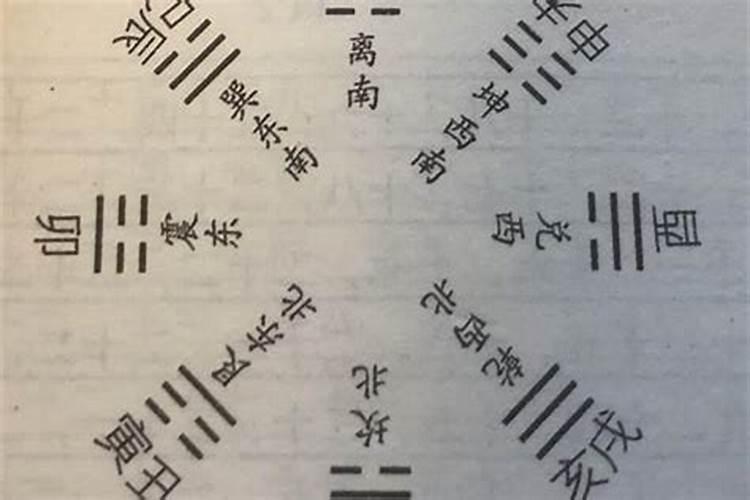 辰巳
巽东南
离南
坤西南
申
卯
震东
兑西
酉
艮东北
寅
坎北
乾西北
戌亥